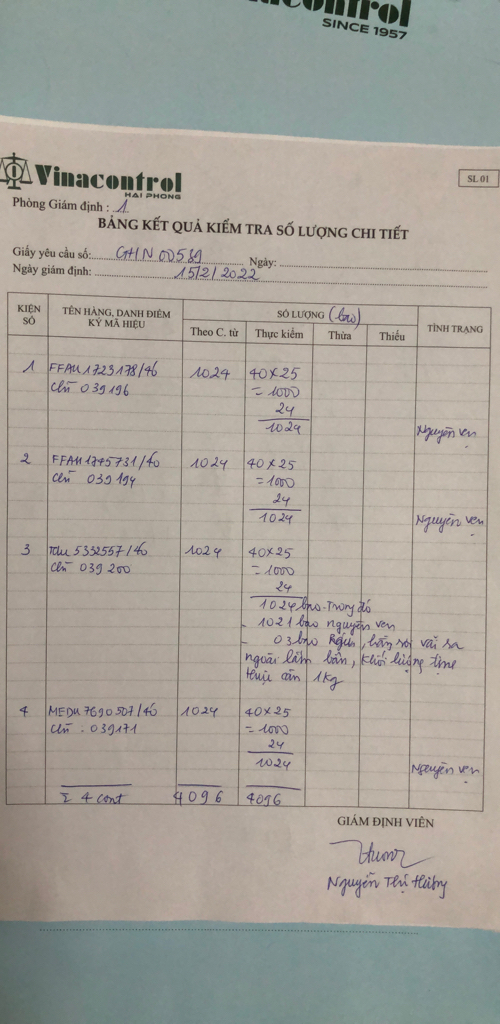 Vinacontrol
SINCE 1957
Vinacontrol
HAI PHONG
SL 01
Phòng Giám định : 1
BẢNG KẾT QUẢ KIỂM TRA SỐ LƯỢNG CHI TIẾT
Giấy yêu cầu số: GHN 00589 Ngày:
Ngày giám định: 15/2/2022
KIỆN SỐ TÊN HÀNG, DANH ĐIỂM KÝ MÃ HIỆU SỐ LƯỢNG (bao) TÌNH TRẠNG
Theo C. từ Thực kiểm Thừa Thiếu
1 FFAU 1723178/40 1024 40×25
chì 039196 = 1000
24
1024 Nguyên vẹn
2 FFAU 1745731/40 1024 40×25
chì 039194 = 1000
24
1024 Nguyên vẹn
3 5332557/40 1024 40×25
chì 039200 = 1000
24
1024 bao. Trong đó
- 1021 bao nguyên vẹn
- 03 bao vãi ra
ngoài lấm bẩn, khối lượng
1kg
4 MEDU 7690507/40 1024 40×25
chì : 039171 = 1000
24
1024 Nguyên vẹn
Σ 4 cont 4096 4096
GIÁM ĐỊNH VIÊN
Nguyễn Thị